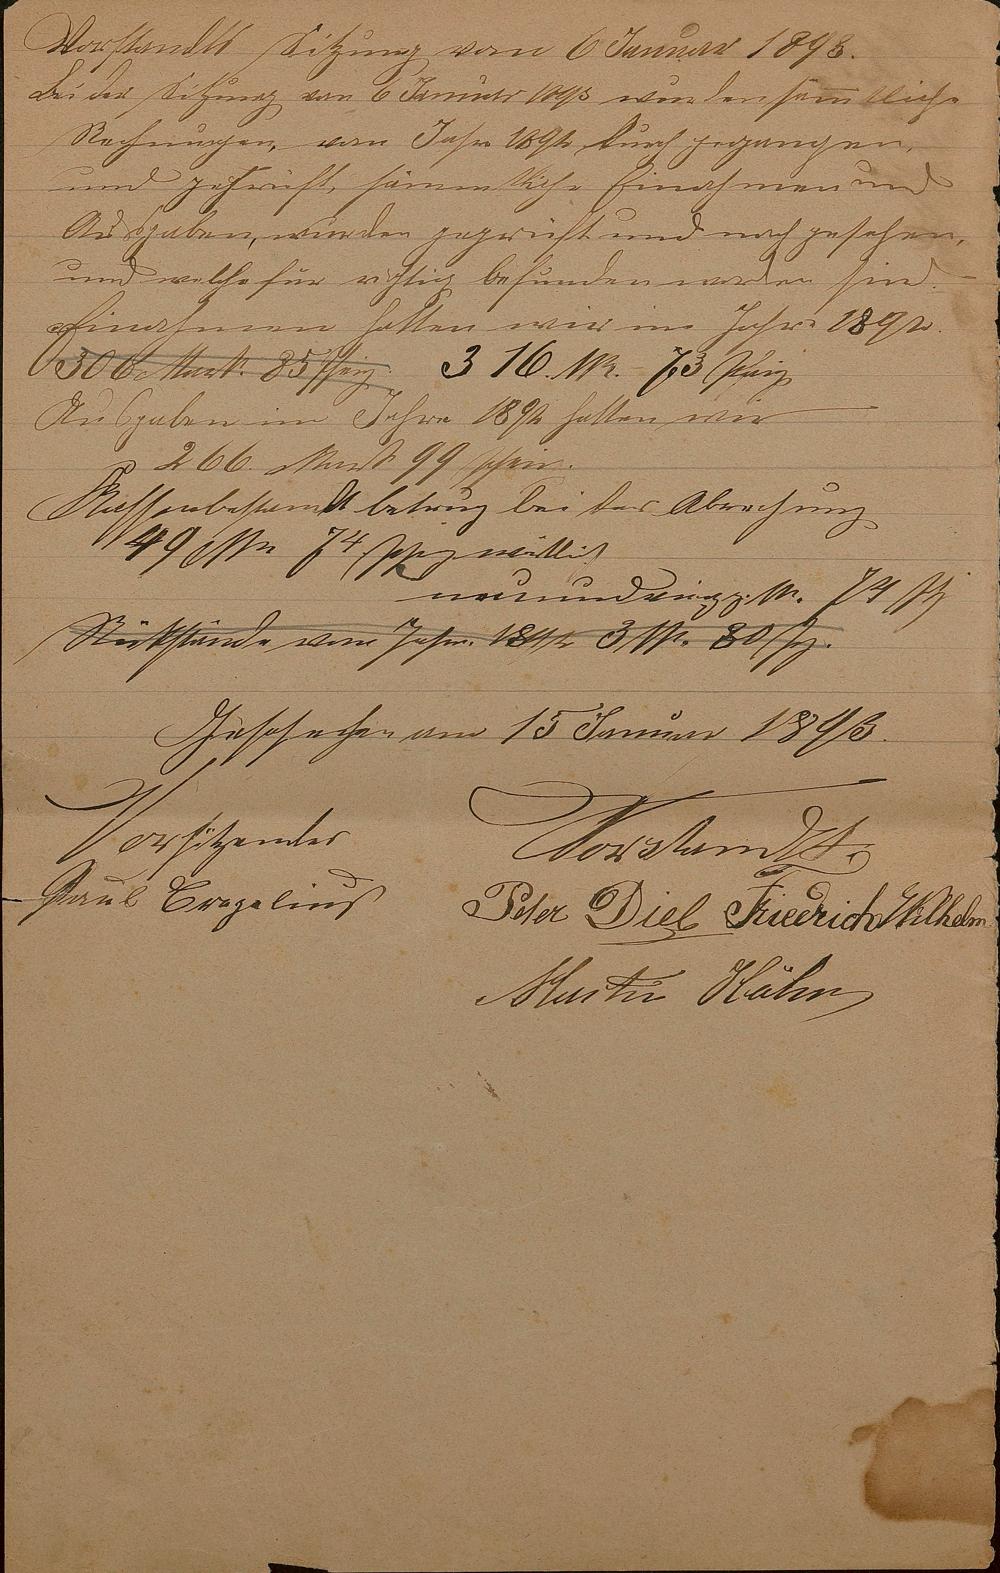 Vorstandts Sitzung vom 6 Januar 1893.
Bei der Sitzung vom 6 Januar 1893 wurden sämmtliche
Rechnungen, vom Jahr 1892 durch gegangen,
und geprüft, sämmtliche Einahmen und
Ausgaben, wurden geprüft und nach gesehen,
und welche für richtig befunden worden sind.
Einahmen hatten wir im Jahre 1892.
306 Mark. 85 Pfeig. 316. Mk. 73 Pfeig
Ausgaben im Jahre 1892 hatten wir
266. Mark 99 Pfeig.
Kassenbestandt betrug bei der Abrechung
49 Mk 74 Pfeig wörtlich
Mk. 74 Pf
Rückstände vom Jahre 1892 3 Mk. 80 Pfg.
Geschehen am 15 Januar 1893.
Vorsitzender Vorstandt.
Paul Peter Diel Friedrich Wilhelm
Martin Hähn